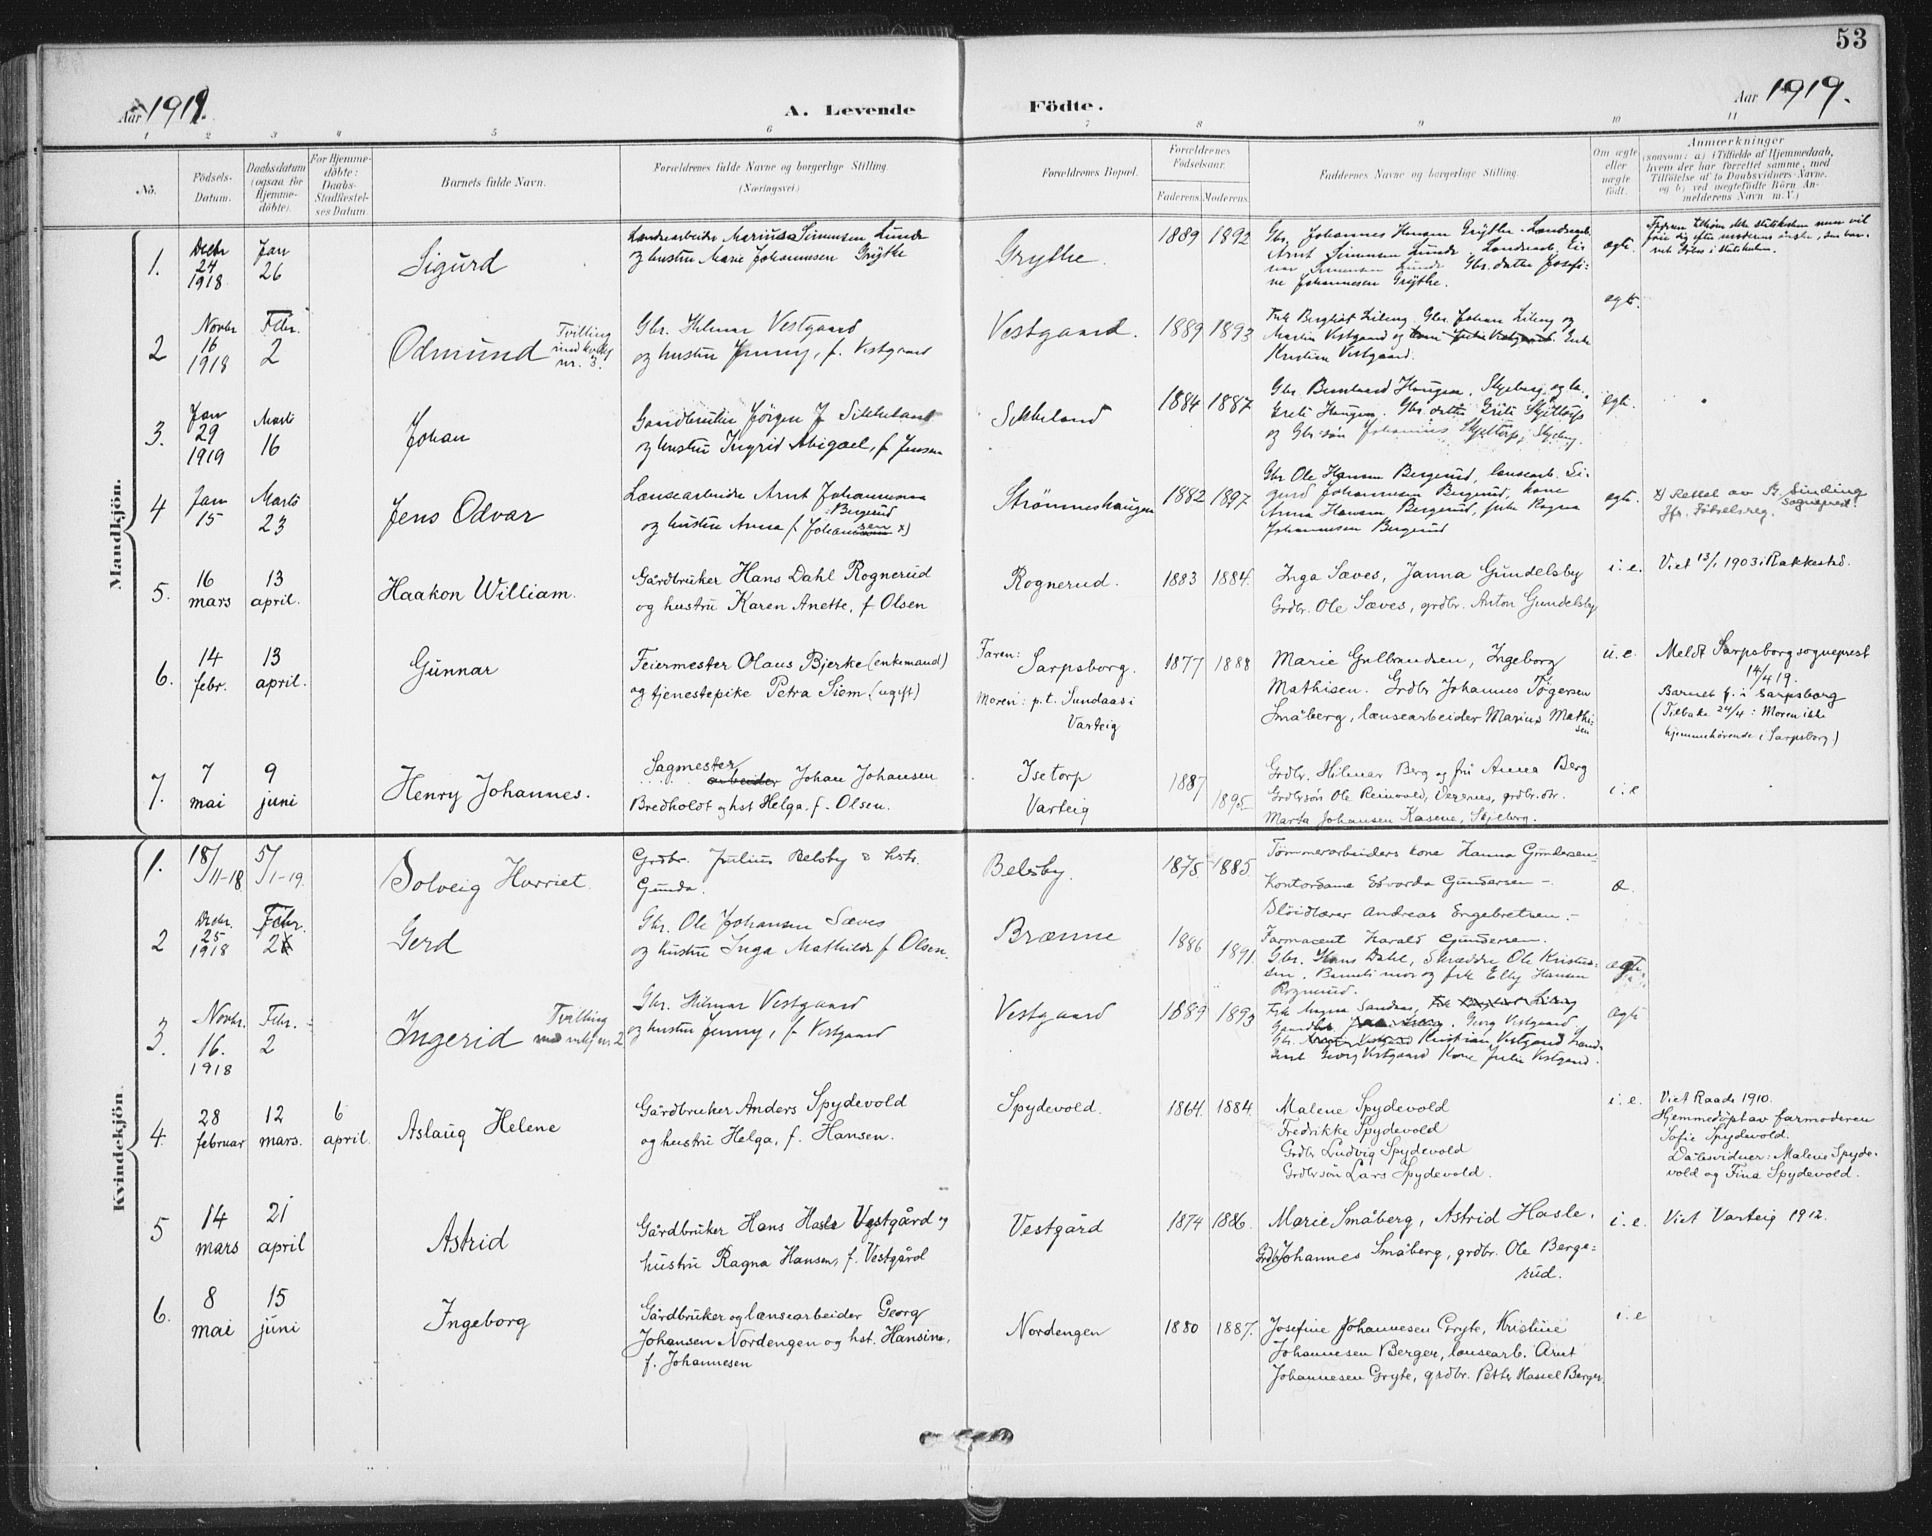 53
Aar 1919.
A. Levende
Födte.
Aar 1919.
1 2 3 4 5 6 7 8 9 10 11
No.
Födsels-
Datum.
Daabsdatum
(ogsaa for
Hjemme-
döbte).
For Hjemme-
döbte:
Daabs-
Stadfæstel-
ses Datum
Barnets fulde Navn.
Forældrenes fulde Navne og borgerlige Stilling.
(Næringsvei)
Forældrenes Bopæl.
Forældrenes
Födselsaar.
Faderens. Moderens.
Faddernes Navne og borgerlige Stilling.
Om ægte
eller
uægte
födt.
Anmærkninger
(saasom: a) i Tilfælde af Hjemmedaab,
hvem der har forrettet samme, med
Tilföielse af to Daabsvidners Navne,
og b) ved uægtefödte Börn An-
melderens Navn m. V.)
Mandkjön.
1.
Decbr
24
1918
Jan
26
Sigurd
Landsearbeider Marius Simensen Lunde
og hustru Marie Johannesen Grythe
Grythe.
1889 1892
Gbr. Johannes Hansen Grythe.
Arnt Simensen Lunde
Gbr. datter Josefi-
ne Johannesen Grythe.
egte.
2
Novbr
16
1918
Febr.
2
Odmund
Tvilling
med kvkj
nr. 3.
Gbr. Hilmar Vestgaard
og hustru Jenny, f. Vestgaard
Vestgaard.
1889 1893
Gbr. Johan Liberg og
Martin Vestgaard og
Kristian Vestgaard.
egte.
3.
Jan
29
1919
Marts
16
Johan
Gaardbruker Jørgen J. Sikkeland
og hustru Ingrid Abigael, f. Jensen
Sikkeland
1884 1887
Gbr. Haugen, Skjeberg, og
Grete Haugen. Gbr. datter Grete Skjeltorp
og Gbr søn Johannes Skjeltorp, Skjeberg.
egte.
4
Jan
15
Marts
23
Jens Odvar
Lænsearbeider Arnt Johannesen
Bergerud
og hustru Anna f. Johansen x)
Strömneshaugen
1882 1897
Gbr Ole Hansen Bergerud, lænsearb. Si-
gurd Johannesen Bergerud, kone
Anna Hansen Bergerud, frk Ragna
Johannesen Bergerud
egte.
x) Rettet av B. Sinding
sogneprest.
Jfr. Fødselsreg.
5.
16
mars
13
april.
Haakon William.
Gårdbruker Hans Dahl Rognerud
og hustru Karen Anette, f Olsen
Rognerud.
1883 1884.
Inga Sæves, Janna Gundelsby
Grdbr. Ole Sæves, grdbr. Anton Gundelsby
i. e.
Viet 13/1 1903 i Rakkestad.
6.
14
febr.
13
april.
Gunnar
Feiermester Olaus Bjerke (enkemand)
og tjenestepike Petra Siem (ugift)
Faren: Sarpsborg.
Moren: p.t. Sundaas i
Varteig
1877 1888
Marie Gulbrandsen, Ingeborg
Mathisen. Grdbr Johannes Tøgersen
Småberg, lænsearbeider Marius Mathi-
sen
u. e.
Meldt Sarpsborg sogneprest
14/4 19.
Barnet f. i Sarpsborg
(Tilbake 24/4: Moren ikke
hjemmehørende i Sarpsborg)
7.
7
mai
9
juni
Henry Johannes.
Sagmester
arbeider Johan Johansen
Bredholdt og hst Helga, f. Olsen.
Isetorp
Varteig
1887
1895
Grdbr. Hilmar Berg og fru Anna Berg
Grdbrsøn Ole Reinvald, Degenes, grdbr.dtr.
Marta Johansen Kasene, Skjeberg.
i. e
Kvindekjön.
1.
18/11-18
5/1-19.
Solveig Harriet.
Grdbr. Julius Belsby & hstr.
Gunda.
Belsby.
1875 1885.
Tømmerarbeiders kone Hanna Gundersen-
Kontordame Edvarda Gundersen -.
Sløidlærer Andreas Engebretsen. -
Farmaceut Harald Gundersen.
e.
2
Decbr.
25
1918
Febr.
2
Gerd
Gbr. Ole Johansen Sæves
og hustru Inga Mathilde f. Olsen.
Brænne
1886 1891
Gbr. Hans Dahl, Skrædder Ole Kristian-
sen, Barnets mor og frk Elly Hansen
Rognerud.
egte.
3.
Novbr.
16.
1918
Febr.
2
Ingerid
Tvilling
med mkj nr 2
Gbr. Hilmar Vestgaard
og hustru Jenny, f. Vestgaard
Vestgaard
1889 1893
Frk Magna Sandnes,
Georg Vestgaard
Gbr. Kristian Vestgaard
Georg Vestgaard Kone Julie Vestgaard.
egte
4.
28
februar
12
mars.
6
april.
Aslaug Helene
Gårdbruker Anders Spydevold
og hustru Helga, f. Hansen.
Spydevold.
1864. 1884.
Malene Spydevold
Fredrikke Spydevold
Grdbr Ludvig Spydevold
Grdbrsøn Lars Spydevold.
i. e.
Viet Raade 1910.
Hjemmedøpt av farmoderen
Sofie Spydevold.
Dåbsvidner: Malene Spyde-
vold og Fina Spydevold.
5
14
mars
21
april
Astrid
Gårdbruker Hans Hasle Vestgård og
hustru Ragna Hansen, f. Vestgård
Vestgård
1874 1886.
Marie Småberg, Astrid Hasle,
Grdbr Johannes Småberg, grdbr. Ole Berge-
rud.
i. e.
Viet Varteig 1912.
6.
8
mai
15
juni
Ingeborg
Gårdbruker og lænsearbeider Georg
Johansen Nordengen og hst. Hansine,
f. Johannesen
Nordengen
1880 1887.
Josefine Johannesen Gryte, Kristine
Johannesen Berger, lænsearb. Arnt
Johannesen Gryte, grdbr. Petter Hassel Berger.
i. e